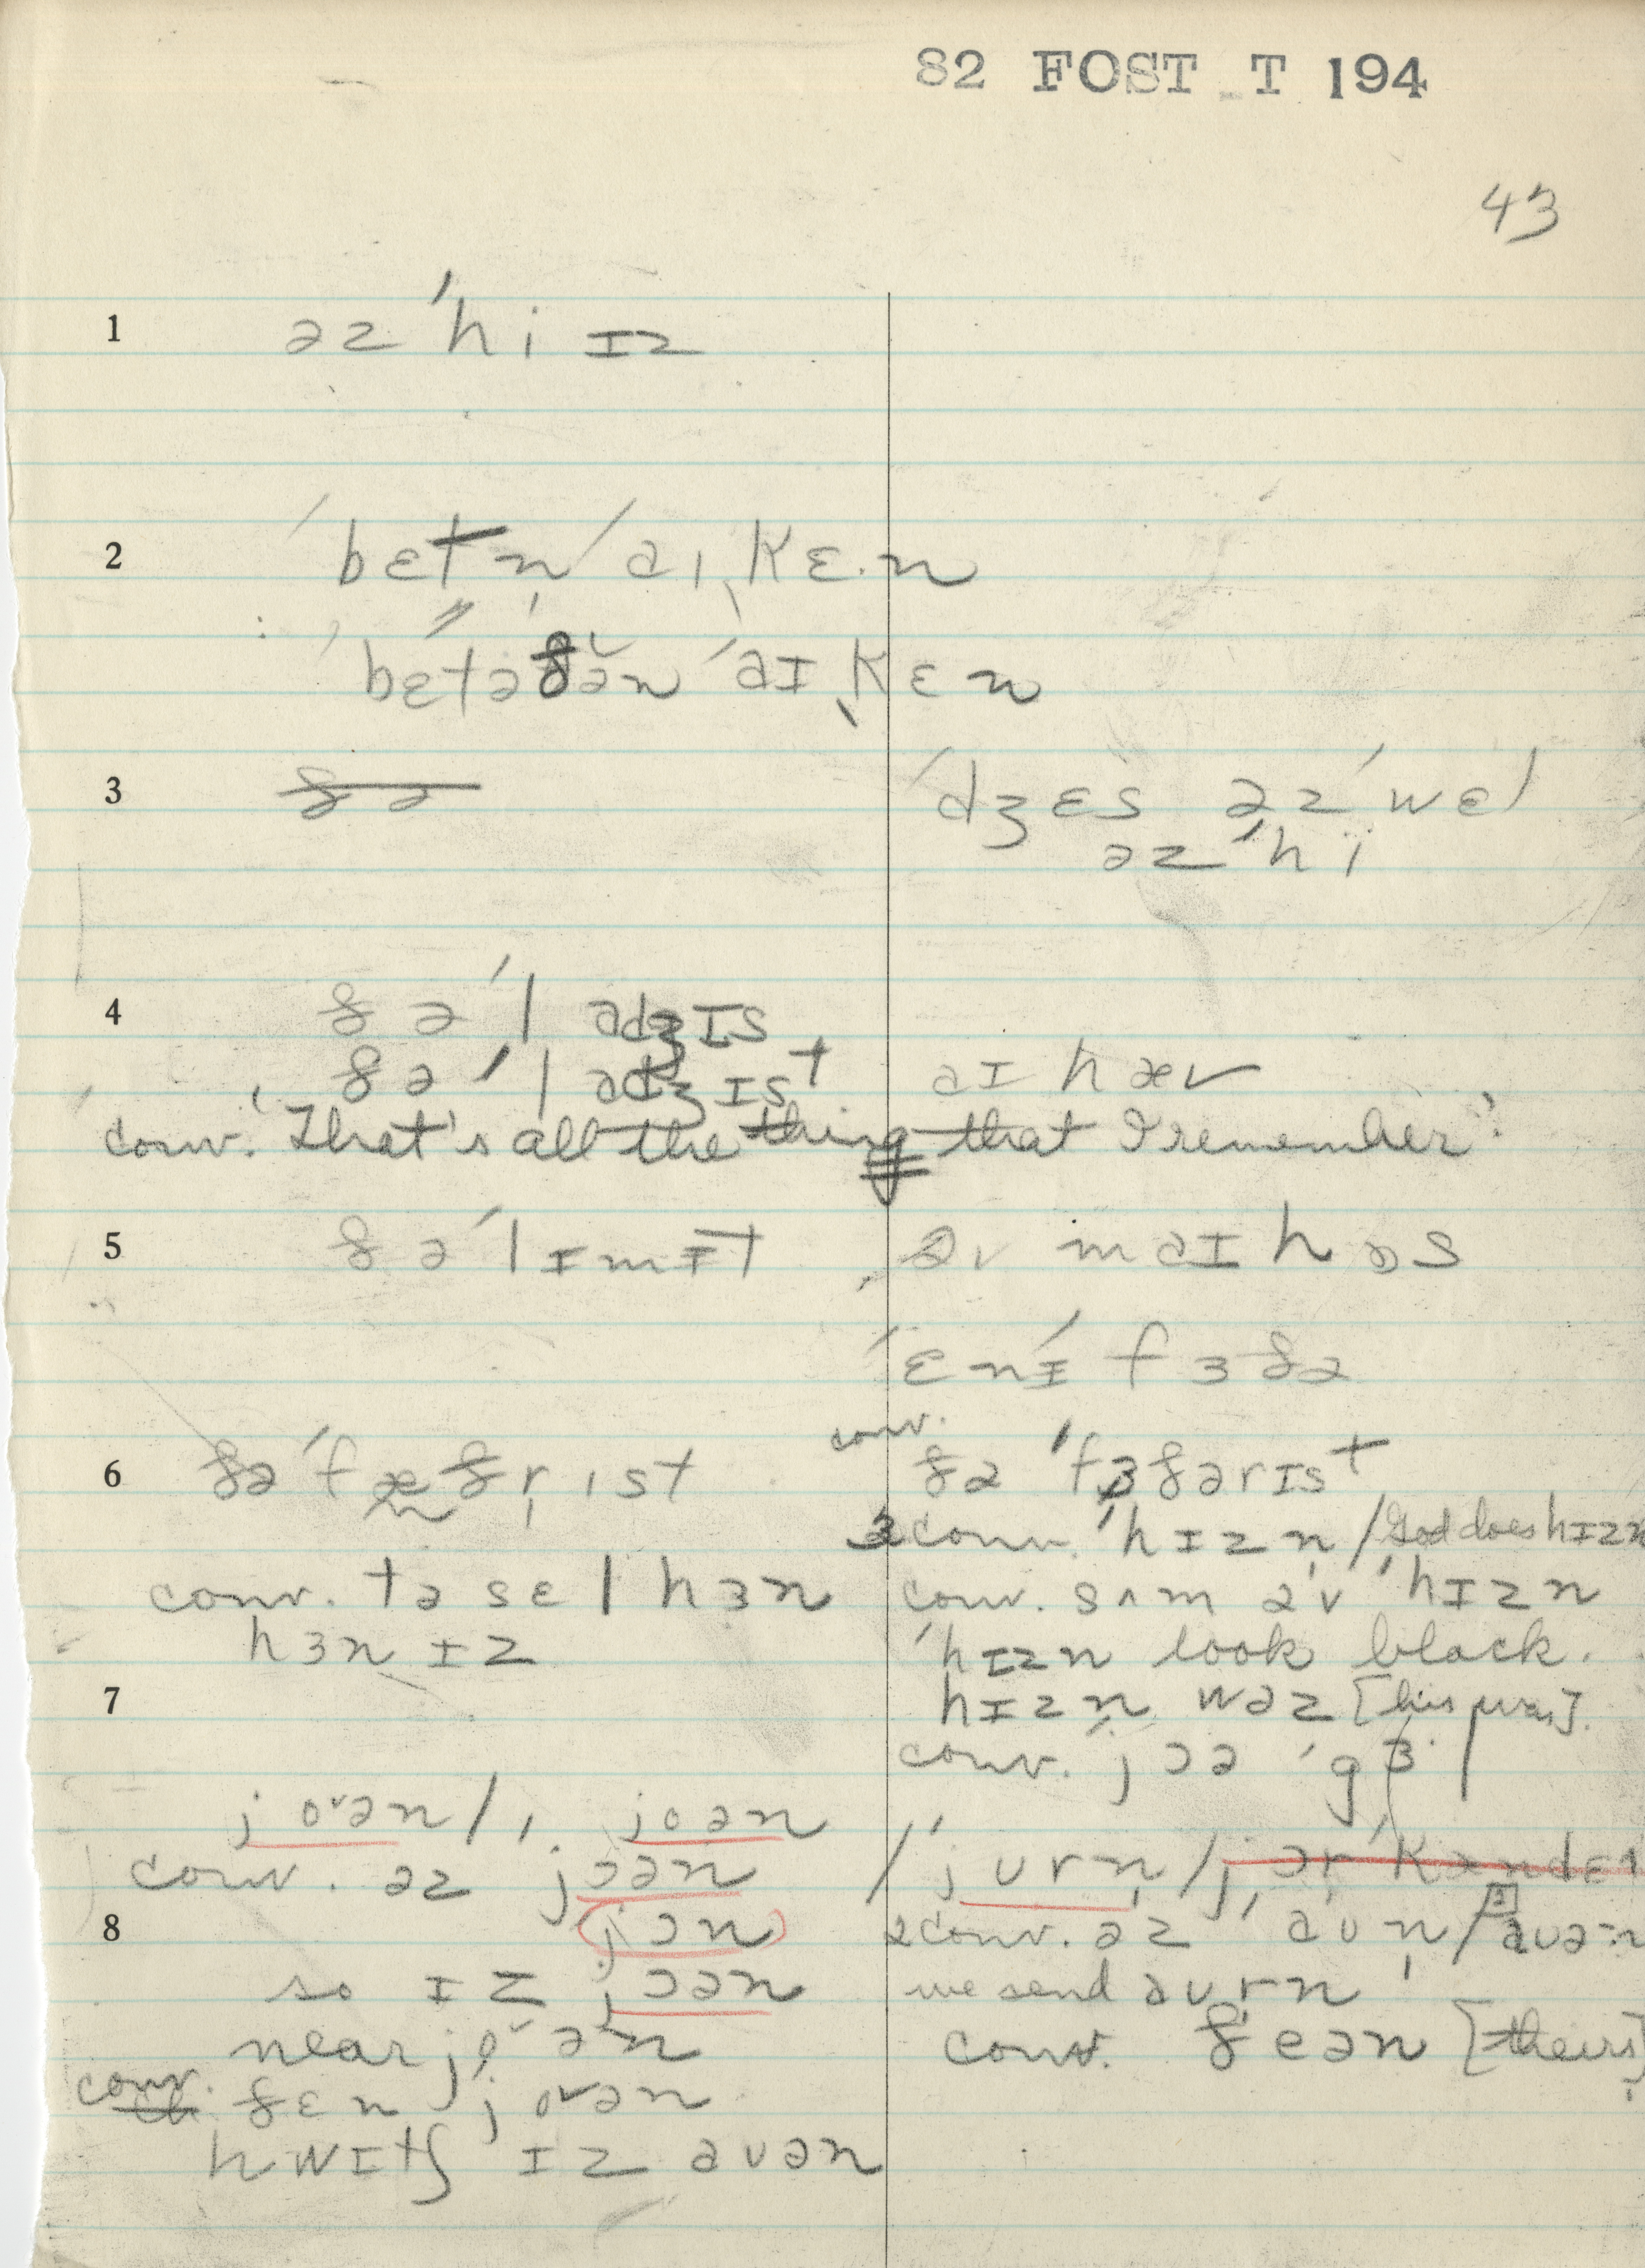 82 FOST T 194
43
1 əz ˈhi ɪz
2 ˈbɛtn̩ ˈaɪˌkɛ·n
ˈbɛtəðə̆n ˈaɪˌkɛn
3 ðə ˈdʒɛs əz ˈwɛl
əz ˈhi
4 ðə ˈladʒɪs
ðə ˈladʒɪst aɪ hæv
conv. 'That's all the thing that I remember'.
5 ðə ˈlɪmɪt əv maɪ haʊs
ˈɛnɪ ˈfɜðə
6 ðə ˈfæðr̩ɪst conv. ðə ˈfɜðərɪst
3 conv. ˈhɪzn̩ / God does hɪzn
conv. tə sɛl hɜn conv. sʌm əv ˈhɪzn
hɜn ɪz ˈhɪzn look black.
7 hɪzn wəz [his was].
conv. jɔə ˈgɜl
joᵛən / joən
conv. əz jɔən / ˈjʊrn̩ / jər
8 jɔn 2 conv. əz ˈaʊn̩ / aʊə:n
so ɪz jɔən we send aʊr̩n
near joᵛən conv. ðeən [theirs]
conv. ðɛn joᵛən
hwɪtʃ ɪz aʊən